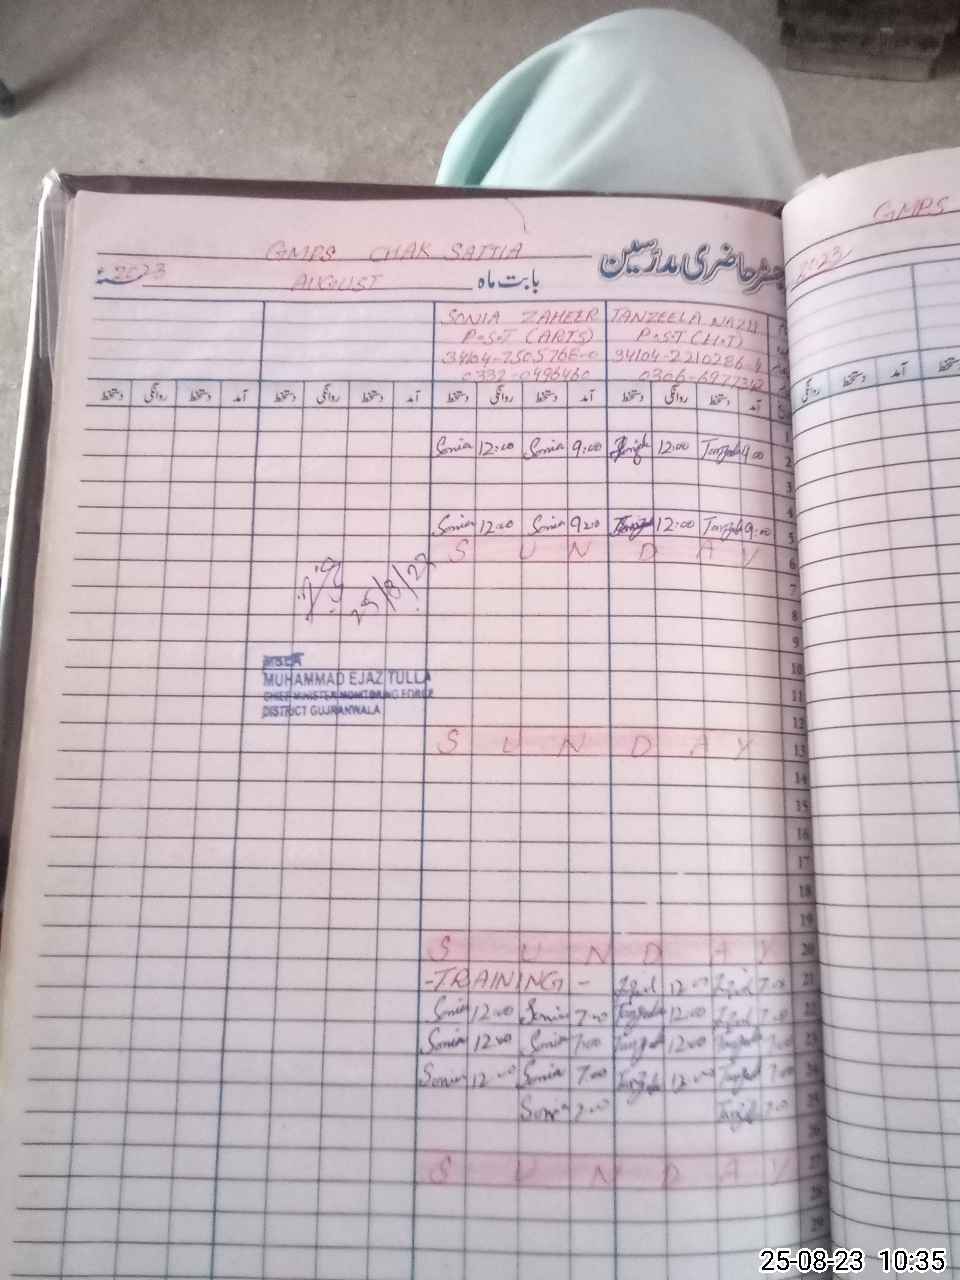 GMPS CHAK SATTIA
GMPS
رجسٹر حاضری مدرسین
بابت ماہ AUGUST 2023ء
2023
SONIA ZAHEER TANZEELA NAZIR
P.S.T (ARTS) P.S.T (H.T)
دستخط روانگی دستخط آمد دستخط روانگی دستخط آمد دستخط روانگی دستخط آمد دستخط روانگی دستخط آمد
روانگی دستخط آمد
1
Sonia 12:00 Sonia 9:00 12:00 Tanzeela 9:00 2
3
4
Sonia 12:00 Sonia 9:00 12:00 Tanzeela 9:00 5
S U N D A Y 6
7
25/8/23
8
9
MUHAMMAD EJAZ TULLA
10
CHIEF MINISTER MONITORING FORCE
11
DISTRICT GUJRANWALA
12
S U N D A Y 13
14
15
16
17
18
19
S U N D A Y 20
-TRAINING- 12:00 7:00 21
Sonia 12:00 Sonia 7:00 12:00 7:00 22
Sonia 12:00 Sonia 7:00 12:00 7:00 23
Sonia 12:00 Sonia 7:00 12:00 7:00 24
Sonia 7:00 7:00 25
26
S U N D A Y 27
28
29
25-08-23 10:35